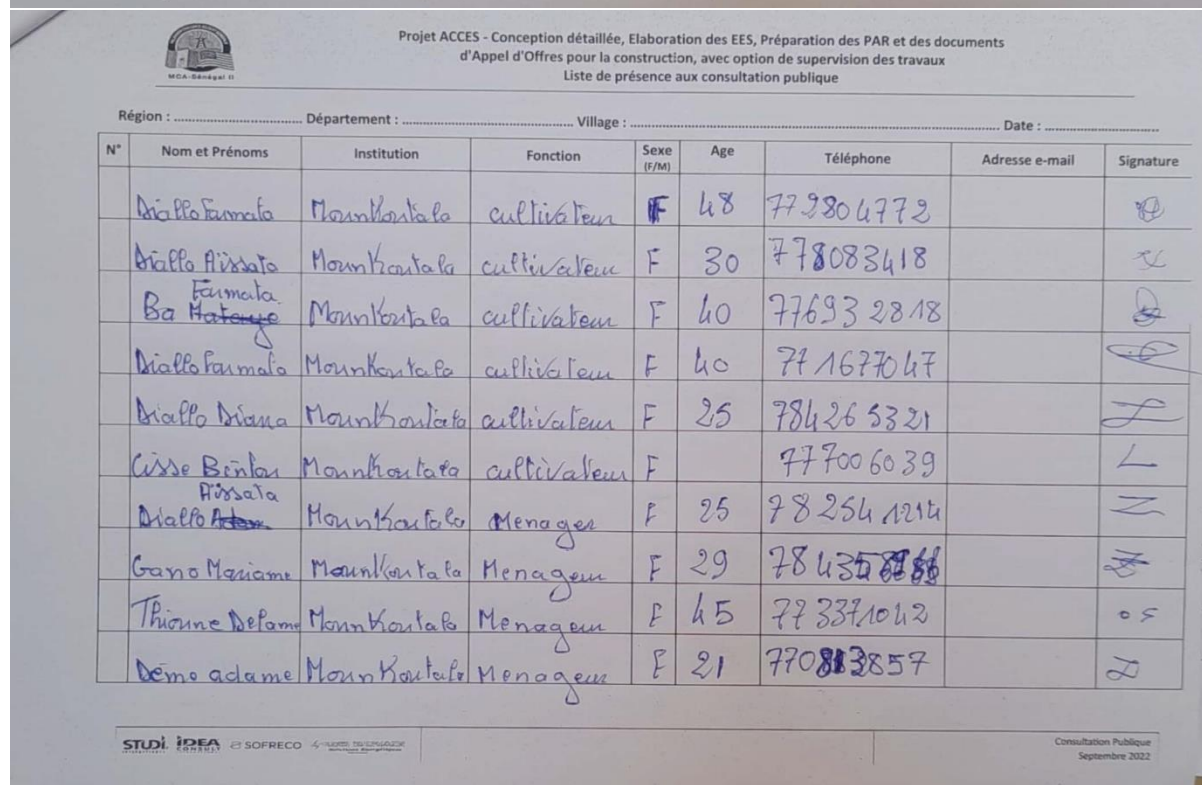 MCA-Sénégal II
Projet ACCES - Conception détaillée, Elaboration des EES, Préparation des PAR et des documents
d'Appel d'Offres pour la construction, avec option de supervision des travaux
Liste de présence aux consultation publique
Région : ................................ Département : ........................................... Village : ............................................................................................. Date : .............................
N° Nom et Prénoms Institution Fonction Sexe (F/M) Age Téléphone Adresse e-mail Signature
Diallo Farmata Mounkoutala cultivateur F 48 779804772
Diallo Aissata Mounkoutala cultivateur F 30 778083418
Farmata
Ba Mounkoutala cultivateur F 40 776932818
Diallo Farmata Mounkoutala cultivateur F 40 771677047
Diallo Diana Mounkoutala cultivateur F 25 784265321
Cisse Bintou Mounkoutala cultivateur F 777006039
Aissata
Diallo Mounkoutala Menager F 25 782541214
Gano Mariame Mounkoutala Menageur F 29
Thioune Delame Mounkoutala Menageur F 45 773371042
Demo adame Mounkoutala Menageur F 21 770813857
STUDI IDEA CONSULT SOFRECO
Consultation Publique
Septembre 2022